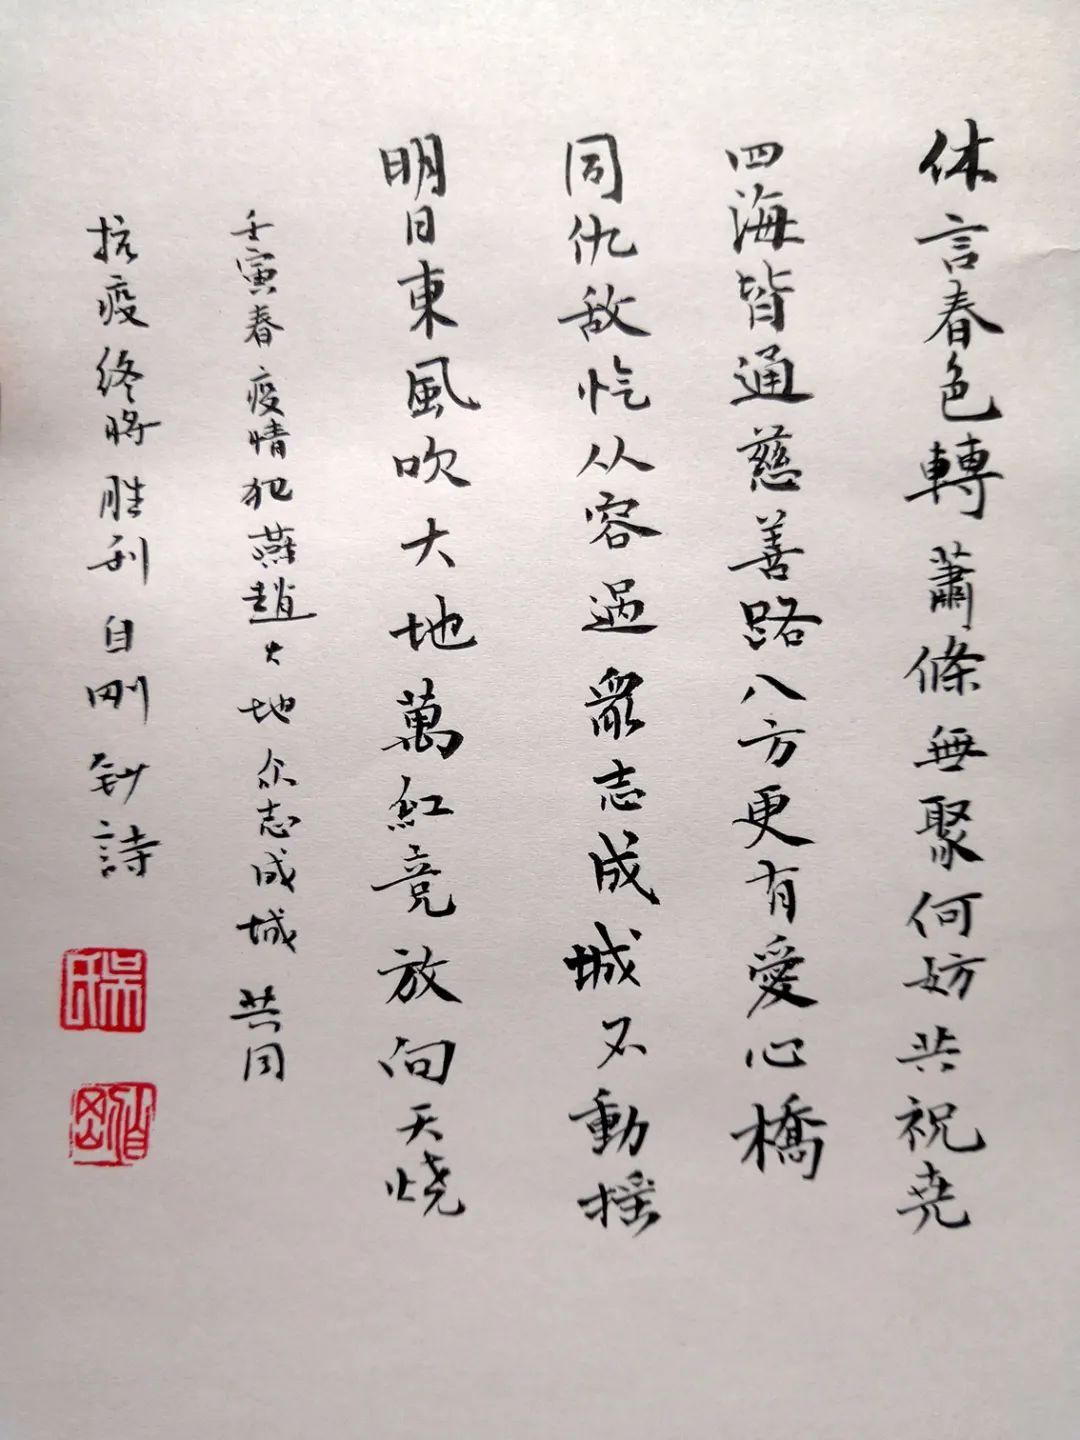 休言春色轉蕭條無聚何妨共祝尭
四海皆通慈善路八方更有愛心橋
同仇敌忾从容過眾志成城不動摇
明日東風吹大地萬紅竞放向天烧
壬寅春疫情犯燕趙大地众志成城共同
抗疫终将胜利自刚鈔詩
吴氏